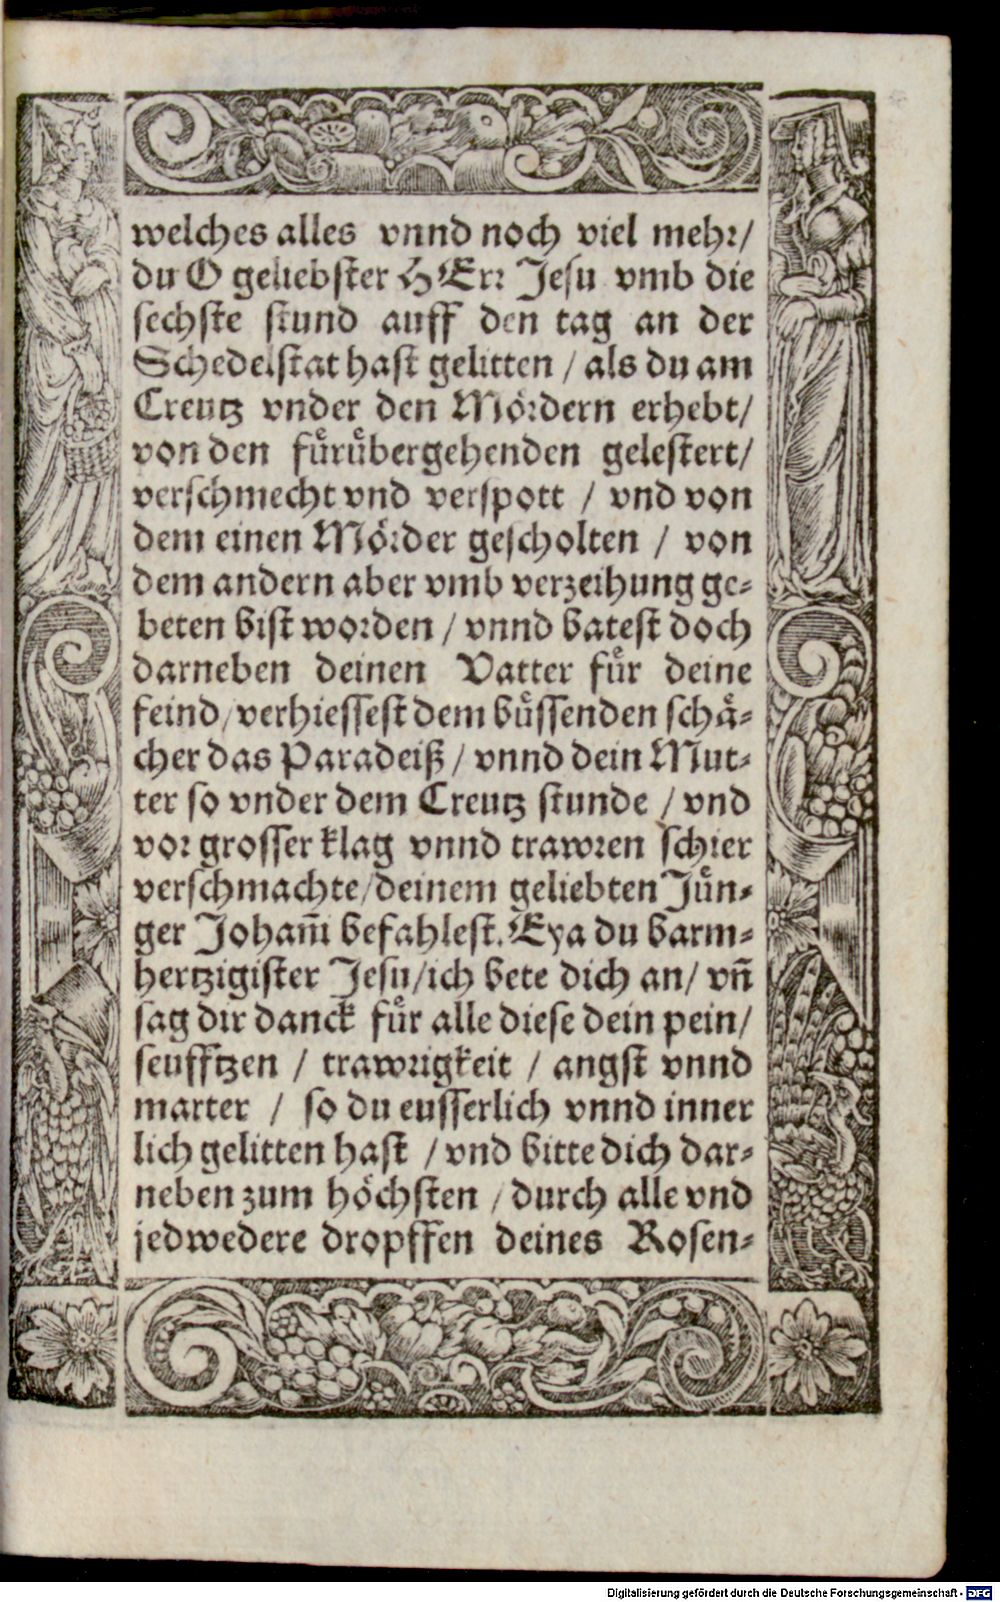 welches alles vnnd noch viel mehr/
du O geliebster HErr Jesu vmb die
sechste stund auff den tag an der
Schedelstat hast gelitten / als du am
Creutz vnder den Mördern erhebt/
von den fürübergehenden gelestert/
verschmecht vnd verspott / vnd von
dem einen Mörder gescholten / von
dem andern aber vmb verzeihung ge-
beten bist worden / vnnd batest doch
darneben deinen Vatter für deine
feind/verhiessest dem büssenden schä-
cher das Paradeiß / vnnd dein Mut-
ter so vnder dem Creutz stunde / vnd
vor grosser klag vnnd trawren schier
verschmachte/deinem geliebten Jün-
ger Johañi befahlest. Eya du barm-
hertzigister Jesu/ich bete dich an/ vñ
sag dir danck für alle diese dein pein/
seufftzen / trawrigkeit / angst vnnd
marter / so du eusserlich vnnd inner
lich gelitten hast / vnd bitte dich dar-
neben zum höchsten / durch alle vnd
jedwedere dropffen deines Rosen-
Digitalisierung gefördert durch die Deutsche Forschungsgemeinschaft - DFG